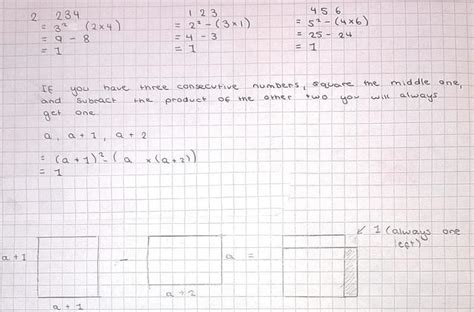 2. 2 3 4    1 2 3    4 5 6
= 3² (2×4)    = 2² - (3×1)    = 5² - (4×6)
= 9 - 8    = 4 - 3    = 25 - 24
= 1    = 1    = 1
If you have three consecutive numbers, square the middle one,
and subract the product of the other two you will always
get one.
a, a+1, a+2
= (a+1)² - (a ×(a+2))
= 1
1 (always one
left)
a+1    -    a    =
a+1    a+2